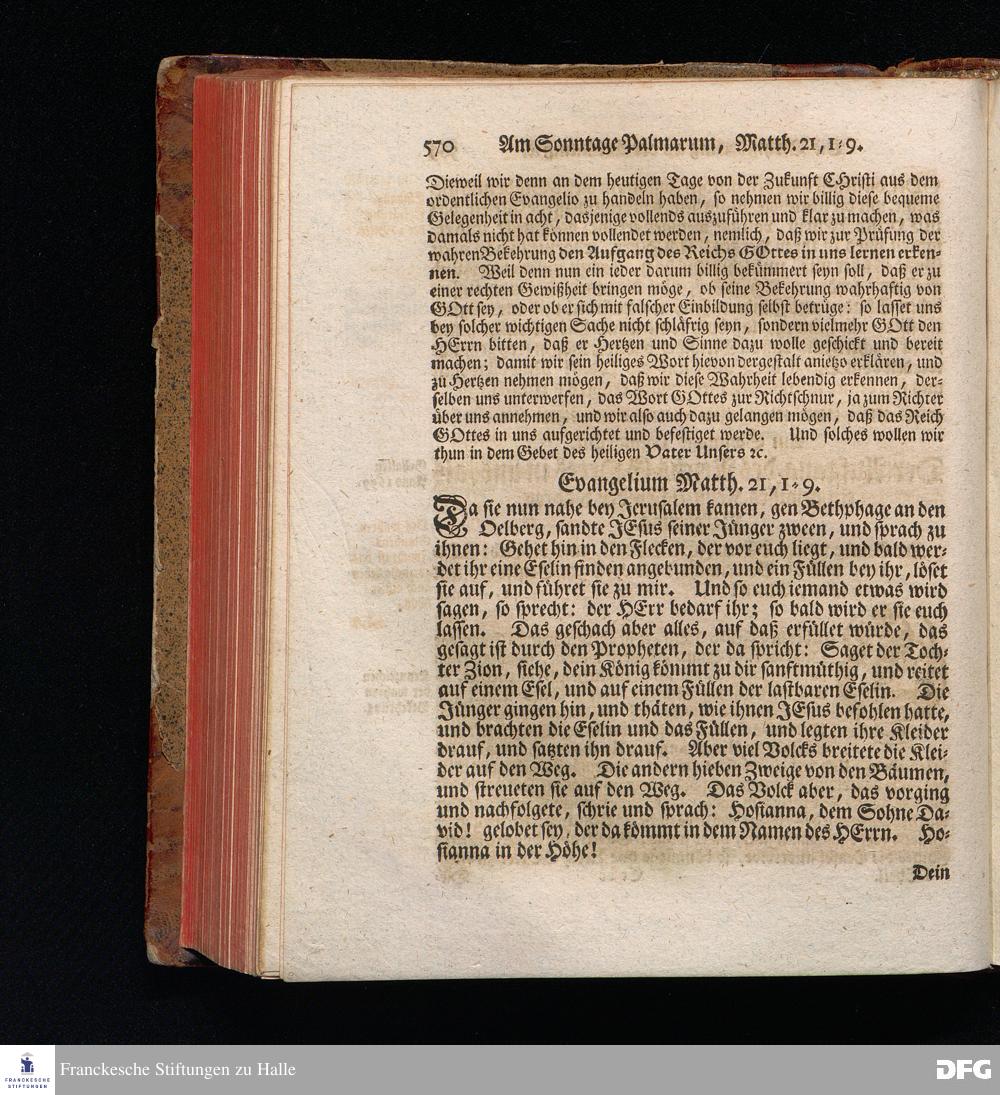 570 Am Sonntage Palmarum, Matth. 21, 1-9.
Dieweil wir denn an dem heutigen Tage von der Zukunft CHristi aus dem
ordentlichen Evangelio zu handeln haben, so nehmen wir billig diese bequeme
Gelegenheit in acht, dasjenige vollends auszuführen und klar zu machen, was
damals nicht hat können vollendet werden, nemlich, daß wir zur Prüfung der
wahren Bekehrung den Aufgang des Reichs GOttes in uns lernen erken-
nen. Weil denn nun ein ieder darum billig bekümmert seyn soll, daß er zu
einer rechten Gewißheit bringen möge, ob seine Bekehrung wahrhaftig von
GOtt sey, oder ob er sich mit falscher Einbildung selbst betrüge: so lasset uns
bey solcher wichtigen Sache nicht schläfrig seyn, sondern vielmehr GOtt den
HErrn bitten, daß er Hertzen und Sinne dazu wolle geschickt und bereit
machen; damit wir sein heiliges Wort hievon dergestalt anietzo erklären, und
zu Hertzen nehmen mögen, daß wir diese Wahrheit lebendig erkennen, der-
selben uns unterwerfen, das Wort GOttes zur Richtschnur, ja zum Richter
über uns annehmen, und wir also auch dazu gelangen mögen, daß das Reich
GOttes in uns aufgerichtet und befestiget werde. Und solches wollen wir
thun in dem Gebet des heiligen Vater Unsers ꝛc.
Evangelium Matth. 21, 1-9.
Da sie nun nahe bey Jerusalem kamen, gen Bethphage an den
Oelberg, sandte JEsus seiner Jünger zween, und sprach zu
ihnen: Gehet hin in den Flecken, der vor euch liegt, und bald wer-
det ihr eine Eselin finden angebunden, und ein Füllen bey ihr, löset
sie auf, und führet sie zu mir. Und so euch iemand etwas wird
sagen, so sprecht: der HErr bedarf ihr; so bald wird er sie euch
lassen. Das geschach aber alles, auf daß erfüllet würde, das
gesagt ist durch den Propheten, der da spricht: Saget der Toch-
ter Zion, siehe, dein König kömmt zu dir sanftmüthig, und reitet
auf einem Esel, und auf einem Füllen der lastbaren Eselin. Die
Jünger gingen hin, und thäten, wie ihnen JEsus befohlen hatte,
und brachten die Eselin und das Füllen, und legten ihre Kleider
drauf, und satzten ihn drauf. Aber viel Volcks breitete die Klei-
der auf den Weg. Die andern hieben Zweige von den Bäumen,
und streueten sie auf den Weg. Das Volck aber, das vorging
und nachfolgete, schrie und sprach: Hosianna, dem Sohne Da-
vid! gelobet sey, der da kömmt in dem Namen des HErrn. Ho-
sianna in der Höhe!
Dein
FRANCKESCHE
STIFTUNGEN
Franckesche Stiftungen zu Halle
DFG